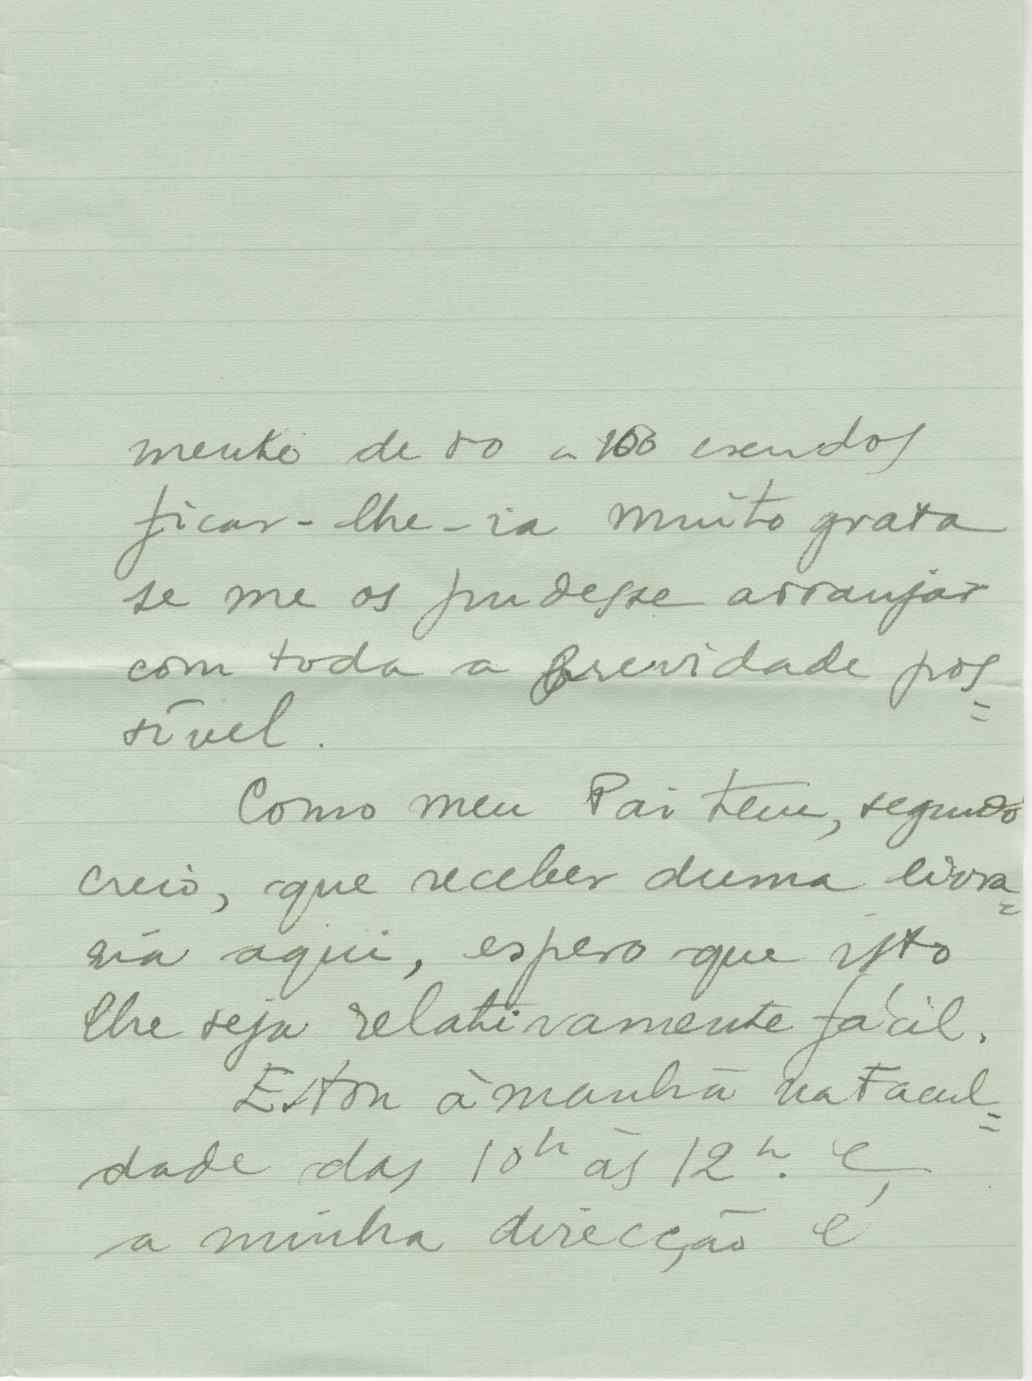 mente de 80 a 100 escudos
ficar-lhe-ia muito grata
se me os pudesse arranjar
com toda a brevidade pos=
sível.
Como meu Pai tem, segundo
creio, que receber duma livra=
ria aqui, espero que isto
lhe seja relativamente fácil.
Estou àmanhã na Facul=
dade das 10h às 12h. E,
a minha direcção é